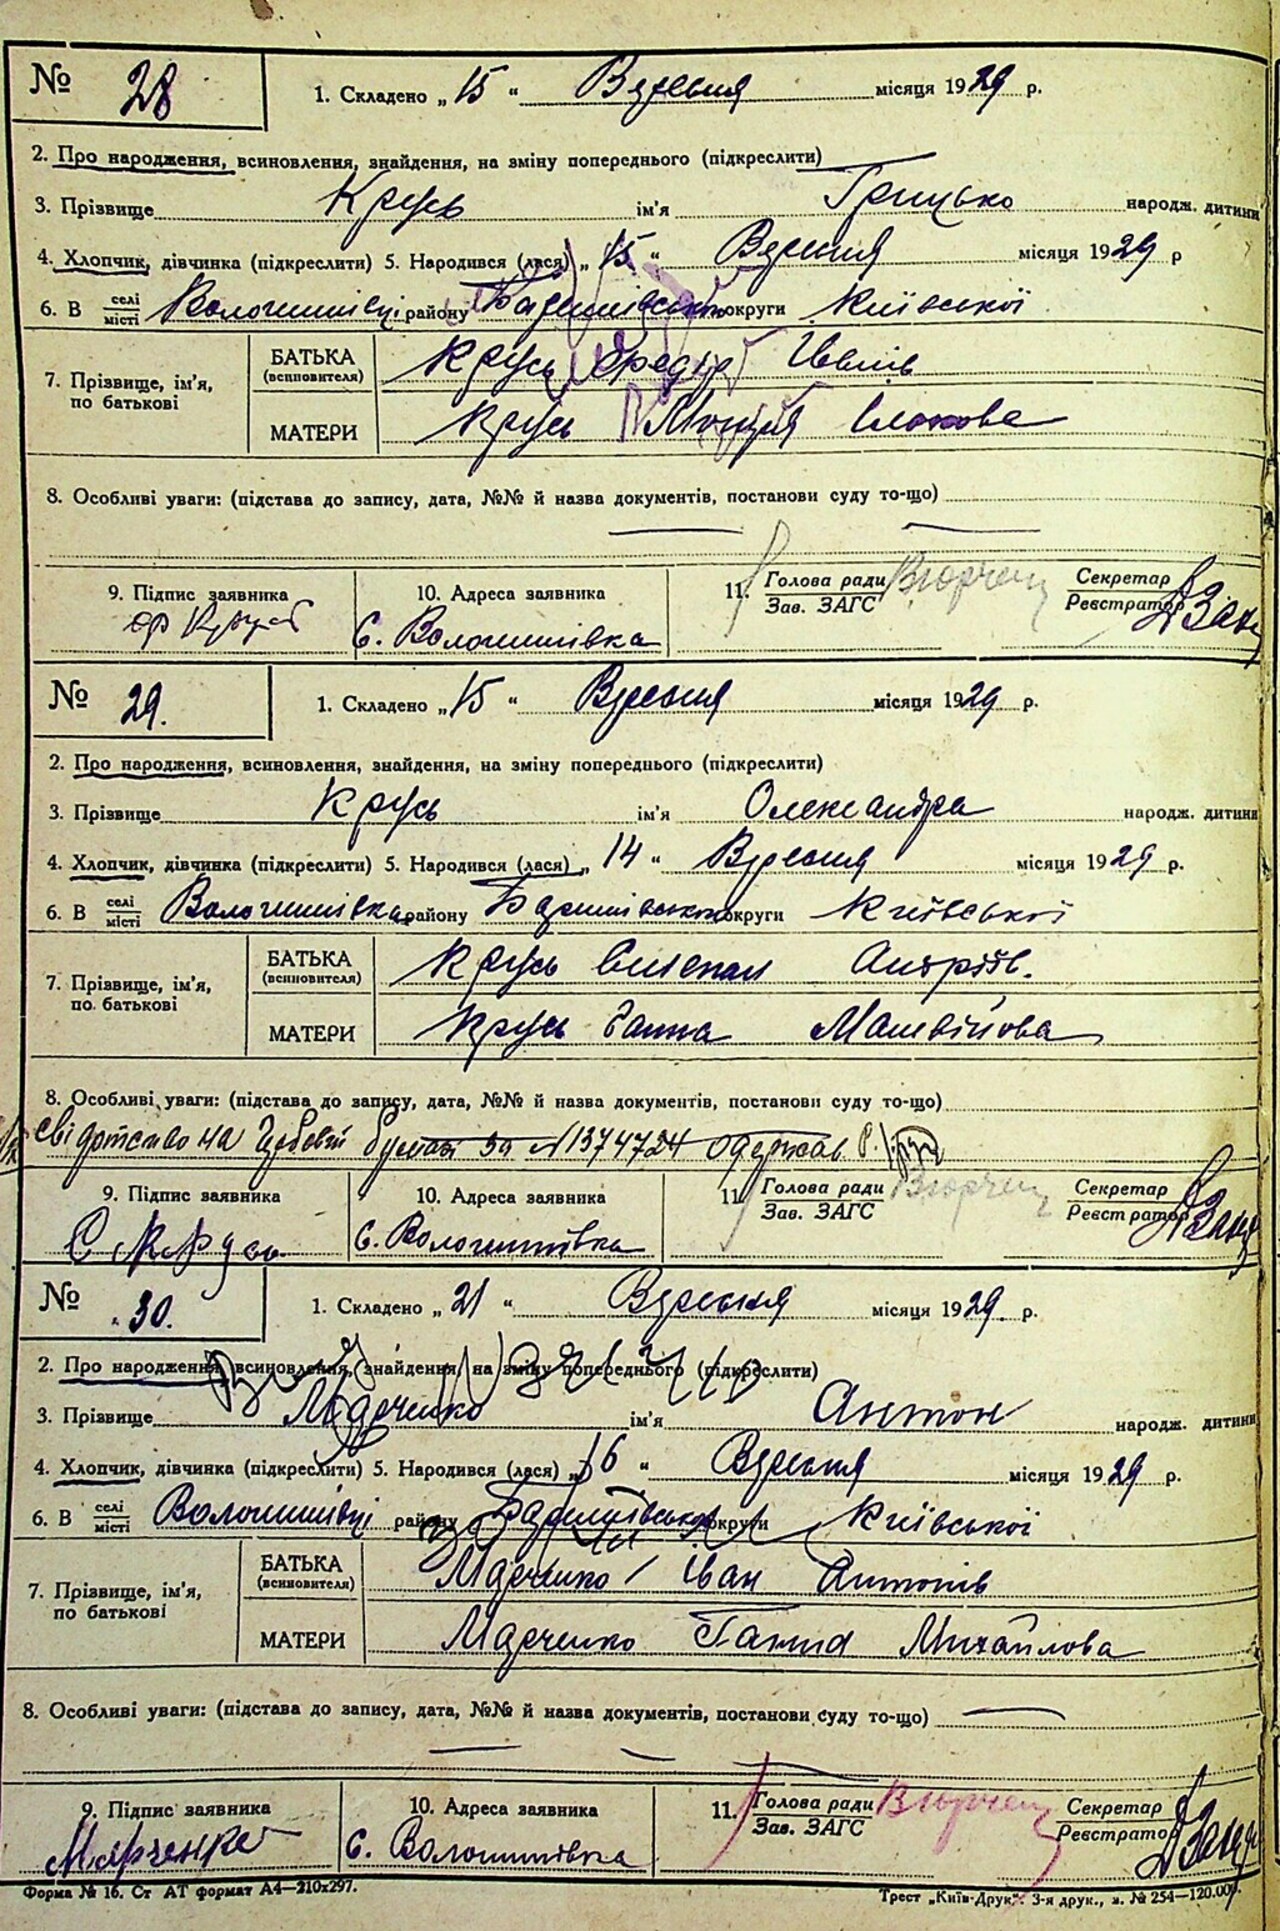 № 28
1. Складено „ 15 “ Вересня місяця 1929 р.
2. Про народження, всиновлення, знайдення, на зміну попереднього (підкреслити)
3. Прізвище Крусь ім'я Грицько народж. дитини
4. Хлопчик, дівчинка (підкреслити) 5. Народився (лася) „ 15 “ Вересня місяця 1929 р
6. В селі місті Волошинівці району Баришівського округи Київської
7. Прізвище, ім'я, по батькові
БАТЬКА (всиновителя) Крусь Федір
МАТЕРИ Крусь
8. Особливі уваги: (підстава до запису, дата, №№ й назва документів, постанови суду то-що)
9. Підпис заявника
10. Адреса заявника
11. Голова ради Зав. ЗАГС
Секретар Реєстратор
с. Волошинівка
№ 29.
1. Складено „ 15 “ Вересня місяця 1929 р.
2. Про народження, всиновлення, знайдення, на зміну попереднього (підкреслити)
3. Прізвище Крусь ім'я Олександра народж. дитини
4. Хлопчик, дівчинка (підкреслити) 5. Народився (лася) „ 14 “ Вересня місяця 1929 р.
6. В селі місті Волошинівка району Баришівського округи Київської
7. Прізвище, ім'я, по батькові
БАТЬКА (всиновителя) Крусь Степан Андріїв.
МАТЕРИ Крусь Ганна Матвійова
8. Особливі уваги: (підстава до запису, дата, №№ й назва документів, постанови суду то-що)
на за № 1374724 одержав
9. Підпис заявника
10. Адреса заявника
11. Голова ради Зав. ЗАГС
Секретар Реєстратор
С Крусь
с. Волошинівка
№ 30.
1. Складено „ 21 “ Вересня місяця 1929 р.
2. Про народження, всиновлення, знайдення, на зміну попереднього (підкреслити)
3. Прізвище Марченко ім'я Антон народж. дитини
4. Хлопчик, дівчинка (підкреслити) 5. Народився (лася) „ 16 “ Вересня місяця 1929 р.
6. В селі місті Волошинівці району Баришівського округи Київської
7. Прізвище, ім'я, по батькові
БАТЬКА (всиновителя) Марченко Іван Антонів
МАТЕРИ Марченко Ганна Михайлова
8. Особливі уваги: (підстава до запису, дата, №№ й назва документів, постанови суду то-що)
9. Підпис заявника
10. Адреса заявника
11. Голова ради Зав. ЗАГС
Секретар Реєстратор
Марченко
с. Волошинівка
Форма № 16. Ст АТ формат А4—210х297.
Трест „Київ-Друк“. 3-я друк., з. № 254—120.000.